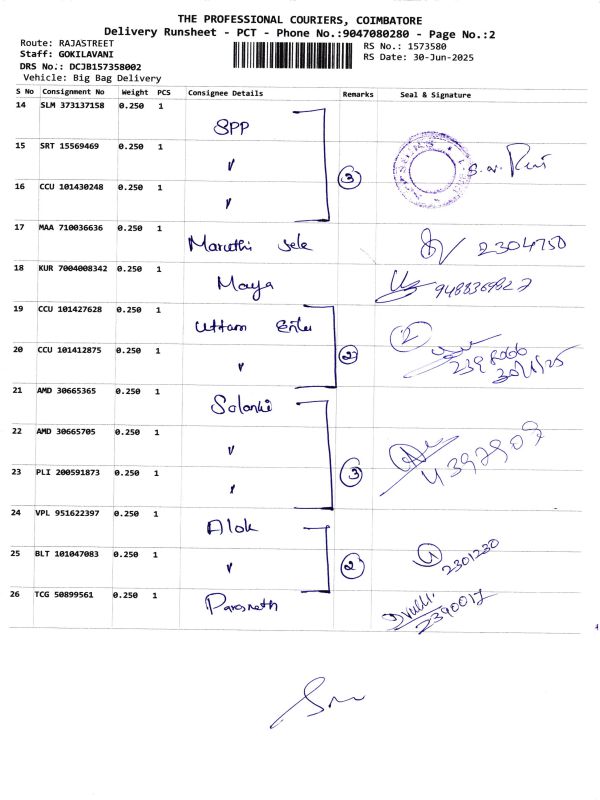 THE PROFESSIONAL COURIERS, COIMBATORE
Delivery Runsheet - PCT - Phone No.:9047080280 - Page No.:2
Route: RAJASTREET
RS No.: 1573580
Staff: GOKILAVANI
RS Date: 30-Jun-2025
DRS No.: DCJB157358002
Vehicle: Big Bag Delivery
S No Consignment No Weight PCS Consignee Details Remarks Seal & Signature
14 SLM 373137158 0.250 1 SPP
15 SRT 15569469 0.250 1 "
3
16 CCU 101430248 0.250 1 "
17 MAA 710036636 0.250 1 Maruthi Sele 2304750
18 KUR 7004008342 0.250 1 Maya
19 CCU 101427628 0.250 1 Uttam Enter 2
20 CCU 101412875 0.250 1 " 2
21 AMD 30665365 0.250 1 Solanki
22 AMD 30665705 0.250 1 "
23 PLI 200591873 0.250 1 " 3
24 VPL 951622397 0.250 1 Alok
25 BLT 101047083 0.250 1 " 2 2301230
26 TCG 50899561 0.250 1 Parasnath 2390017